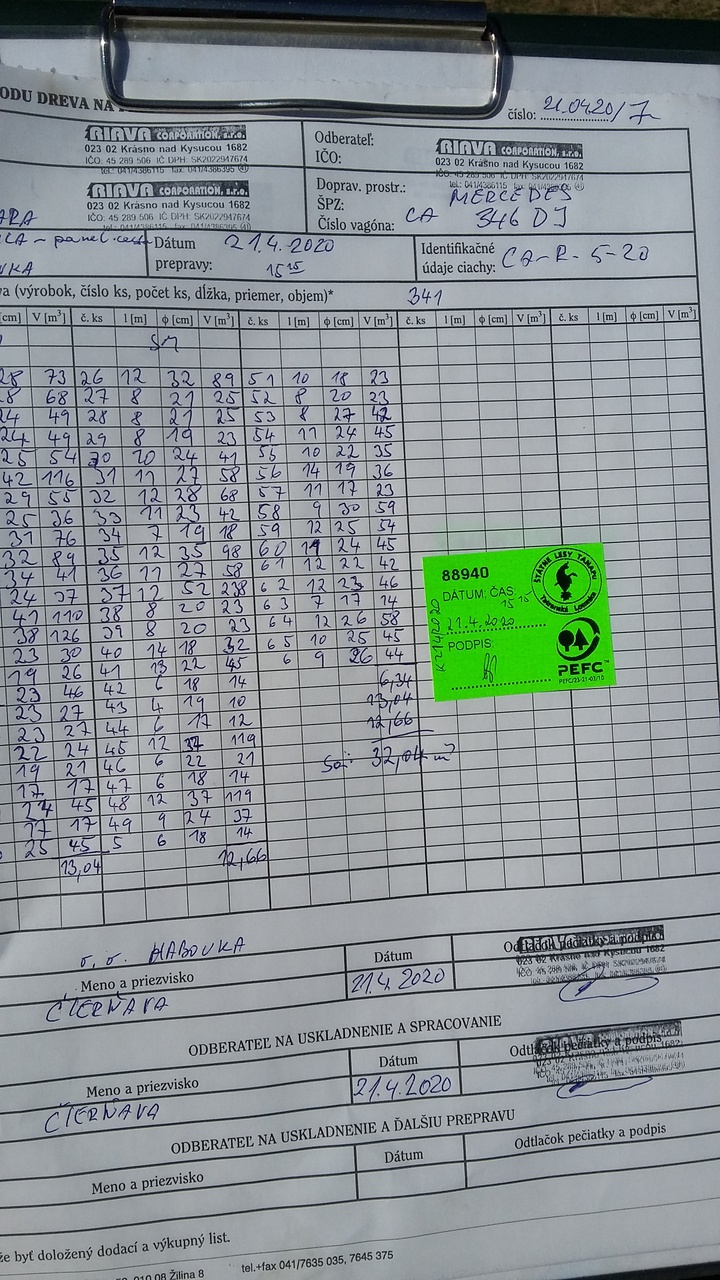 ODU DREVA NA
číslo: 21.0420/7
RIAVA CORPORATION, s.r.o.
023 02 Krásno nad Kysucou 1682
IČO: 45 289 506 IČ DPH: SK2022947674
tel.: 041/4386115 fax: 041/4386395
Odberateľ:
IČO:
RIAVA CORPORATION, s.r.o.
023 02 Krásno nad Kysucou 1682
IČO: 45 289 506 IČ DPH: SK2022947674
RIAVA CORPORATION, s.r.o.
023 02 Krásno nad Kysucou 1682
IČO: 45 289 506 IČ DPH: SK2022947674
Doprav. prostr.: MERCEDES
ŠPZ: CA 346 DJ
Číslo vagóna:
Dátum prepravy: 21.4.2020 15 15
Identifikačné údaje ciachy: CA-R-5-20
a (výrobok, číslo ks, počet ks, dĺžka, priemer, objem)* 341
[cm] V [m³] č. ks l [m] ϕ [cm] V [m³] č. ks l [m] ϕ [cm] V [m³] č. ks l [m] ϕ [cm] V [m³] č. ks l [m] ϕ [cm] V [m³]
SM
28 73 26 12 32 89 51 10 18 23
28 68 27 8 21 25 52 8 20 23
24 49 28 8 21 25 53 8 27 42
24 49 29 8 19 23 54 11 24 45
25 54 30 10 24 41 55 10 22 35
42 116 31 11 27 58 56 14 19 36
29 55 32 12 28 68 57 11 17 23
25 36 33 11 23 42 58 9 30 59
31 76 34 7 19 18 59 12 25 54
32 89 35 12 35 98 60 11 24 45
34 41 36 11 27 58 61 12 22 42
24 37 37 12 52 238 62 12 23 46
41 110 38 8 20 23 63 7 17 14
38 126 39 8 20 23 64 12 26 58
23 30 40 14 18 32 65 10 25 45
19 26 41 13 22 45 6 9 26 44
23 46 42 6 18 14 6,34
23 27 43 4 19 10 13,04
23 27 44 6 17 12 12,66
22 24 45 12 37 119
19 21 46 6 22 21 32,04 m³
17 17 47 6 18 14
24 45 48 12 37 119
17 17 49 9 24 37
25 45 5 6 18 14
13,04 12,66
88940
DÁTUM: ČAS:
15 15
21.4.2020
PODPIS:
ŠTÁTNE LESY TANAPU
Tatranská Lomnica
PEFC
PEFC/23-21-02/10
o. o. HABOVKA
Meno a priezvisko
Dátum
21.4.2020
Odtlačok pečiatky a podpis
023 02 Krásno nad Kysucou 1682
ČIERŇAVA
ODBERATEĽ NA USKLADNENIE A SPRACOVANIE
Meno a priezvisko
Dátum
21.4.2020
Odtlačok pečiatky a podpis
ČIERŇAVA
ODBERATEĽ NA USKLADNENIE A ĎALŠIU PREPRAVU
Meno a priezvisko
Dátum
Odtlačok pečiatky a podpis
že byť doložený dodací a výkupný list.
010 08 Žilina 8 tel.+fax 041/7635 035, 7645 375